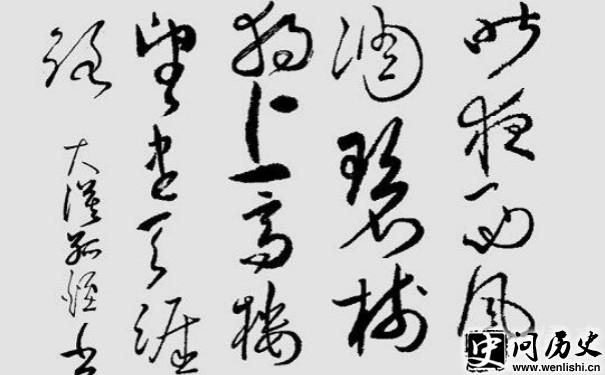 昨夜西风
凋碧树
独上高楼
望尽天涯
路
大漠孤烟书
史 问历史
www.wenlishi.cn